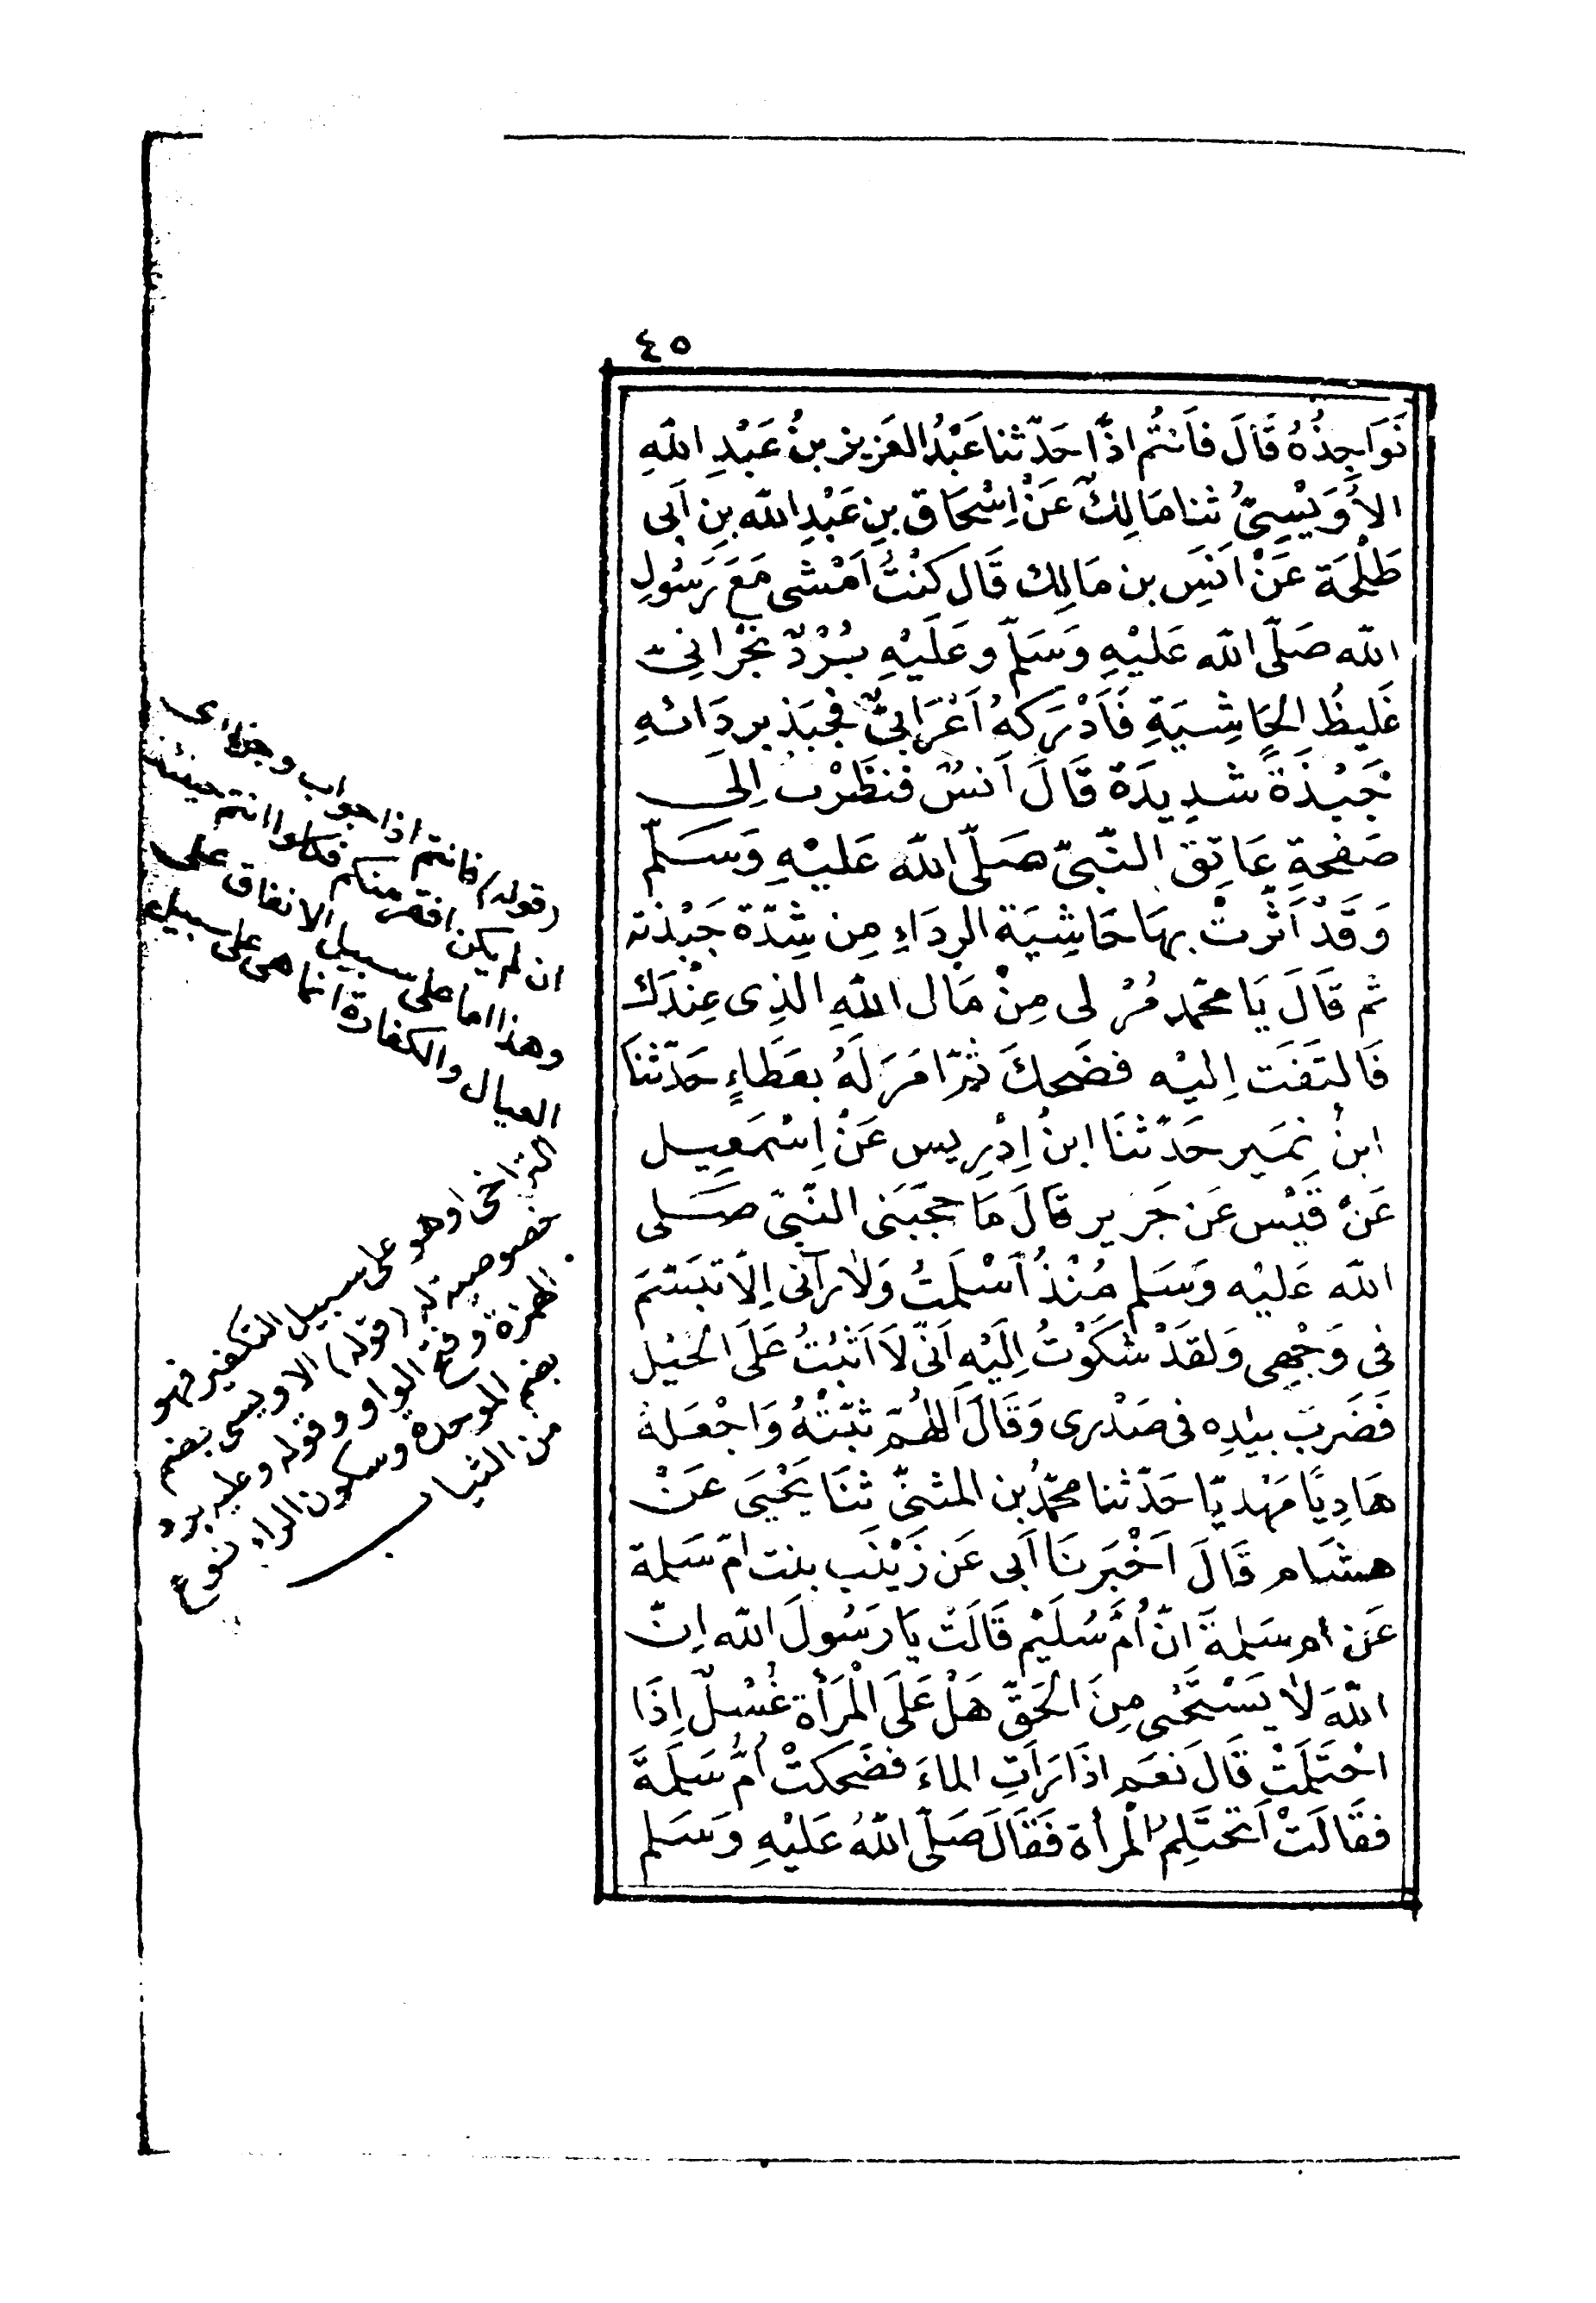 ٤٥
نَوَاجِذُهُ قَالَ فَاَنتُم اذًا حَدّثنا عَبْدُ العَزيز بنُ عَبْدِ اللهِ
الاُوَيْسِىُّ ثنا مَالِكٌ عَنْ اِسْحَاقَ بنِ عَبْدِ الله بنِ اَبى
طَلْحَة عَنْ اَنَسِ بن مَالِك قَالَ كُنْتُ اَمْشى مَعَ رَسُولِ
الله صَلّى الله عَليْهِ وَسَلّم وعَلَيْهِ بُرْدٌ نَجْرَانىّ
غَليظُ الحَاشِيَةِ فَاَدْرَكهُ اَعْرَابىٌّ فجَبَذ بردَائهِ
جَبْذَةً شدِيدَةً قَالَ اَنسٌ فنظَرْتُ اِلَى
صَفحةِ عَاتِق النّبىّ صَلّى الله عَليْهِ وَسَلّم
وَقَدْ اَثَّرتْ بهَا حَاشِيَة الرِدَاءِ مِن شِدّة جَبْذته
ثم قَالَ يَا محمّد مُرْ لى مِنْ مَال اللهِ الذِى عِنْدَك
فَالتَفَت اِليْه فضَحِكَ ثمّ اَمَرَ لَهُ بعَطَاءٍ حَدّثنَا
ابنُ نمَير حَدّثنَا ابنُ اِدْرِيس عَنْ اِسْمَعِيل
عَنْ قَيْس عَن جَرير قَالَ مَا حجَبَنى النّبىّ صَلى
الله عَليْه وَسَلم مُنْذُ اَسْلَمتُ وَلَا رآنى اِلّا تبَسّمَ
فى وَجْهِى وَلقَدْ شكَوْتُ اِلَيْهِ اَنّى لَا اَثبُتُ عَلَى الخيْل
فَضَرَبَ بيَدِه فى صَدْرى وَقَالَ اَللهُمّ ثبّتْهُ وَاجْعَلهُ
هَادِيًا مَهْديّا حَدّثنا محمّدُ بن المثنىّ ثنَا يَحْيَى عَنْ
هِشَام قَالَ اَخْبَرنَا اَبى عَن زَيْنَب بنت امّ سَلمة
عَن ام سَلمةَ انّ اُمَّ سُلَيْم قَالَتْ يَا رَسُولَ الله اِنّ
اللهَ لَا يَسْتَحْيى مِنَ الحَقّ هَلْ عَلَى الْمَرأة غُسْلٌ اِذَا
احْتَلَمَتْ قَالَ نعَم اذَا رَأتِ الماءَ فضَحِكَتْ اُمُّ سَلَمَةَ
فقَالَتْ اَتحْتَلِمُ المَرأة فَقَالَ صَلّى اللهُ عَليْهِ وَسَلم
(قوله) فانتم اذا جواب وجزاء اى
ان لم يكن افقر منكم فكلوا انتم حينئذ
وهذا اما على سبيل الانفاق على
العيال والكفارة انما هى على سبيل
التراخى او هو على سبيل التكفير فهو
خصوصية له (قوله) الاويسى بضم
الهمزة وفتح الواو وقوله وعليه برد
بضم الموحدة وسكون الراء نوع
من الثياب